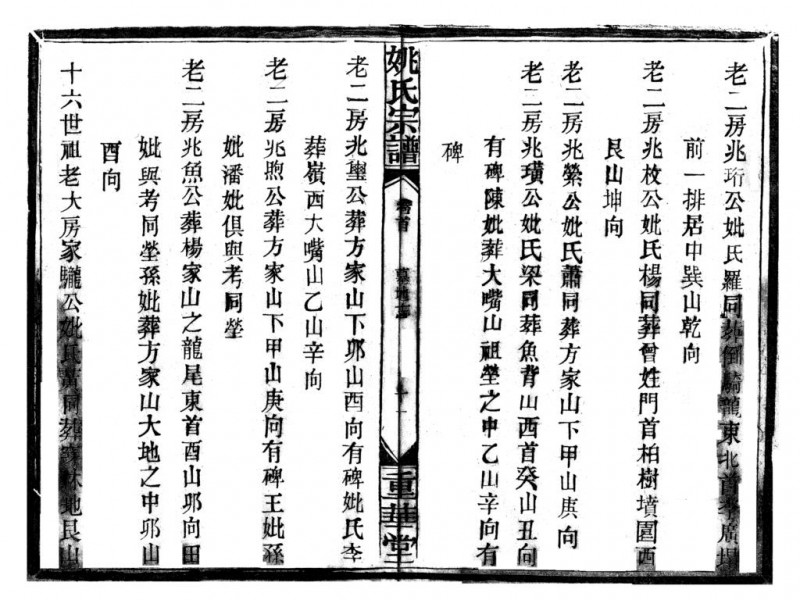 老二房兆珩公妣氏羅同葬倒騎龍東北首李廣場
前一排居中巽山乾向
老二房兆枚公妣氏楊同葬曾姓門首柏樹墳園西
艮山坤向
老二房兆縈公妣氏蕭同葬方家山下甲山庚向
老二房兆璜公妣氏梁同葬魚背山西首癸山丑向
有碑陳妣葬大嘴山祖塋之中乙山辛向有
碑
姚氏宗譜
卷首
墓地志
十一
重華堂
老二房兆璽公葬方家山下夘山酉向有碑妣氏李
葬嶺西大嘴山乙山辛向
老二房兆煦公葬方家山下甲山庚向有碑王妣孫
妣潘妣俱與考同塋
老二房兆魚公葬楊家山之龍尾東首酉山夘向田
妣與考同塋孫妣葬方家山大地之中夘山
酉向
十六世祖老大房家驥公妣氏富同葬林地艮山